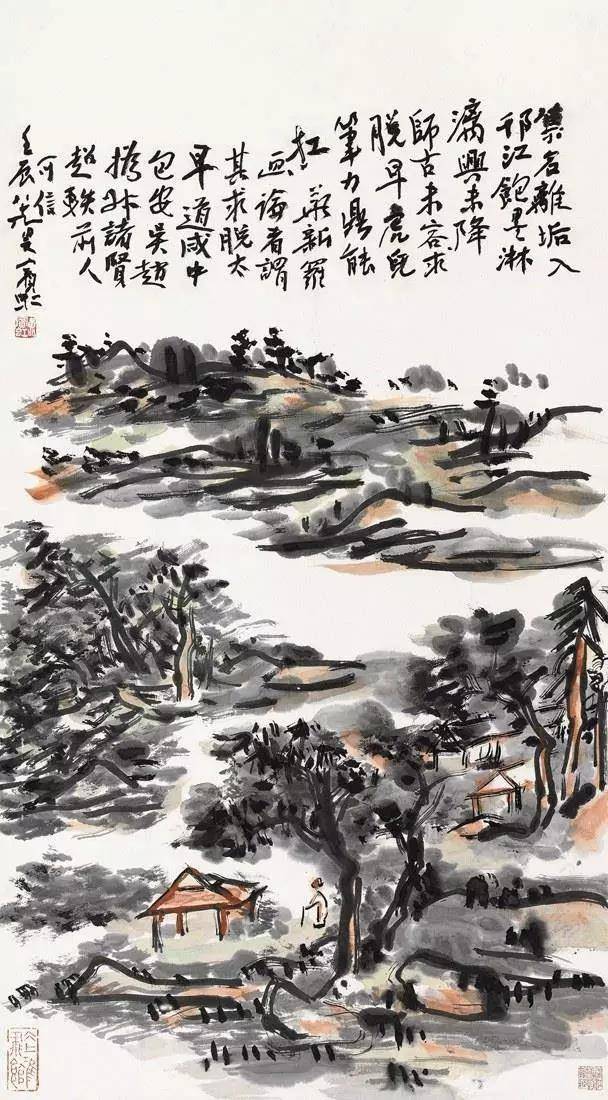 集名離垢入
邗江飽墨淋
漓興未降
師古未容求
脱早虎兒
筆力鼎能
扛 華新羅
画論者謂
其求脱太
早道咸中
包安吳趙
撝叔諸賢
超軼前人
可信
壬辰叟賓虹